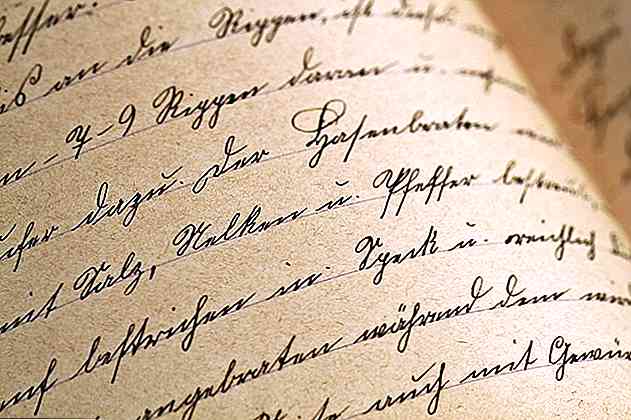 besser.
bis an die Rippen, ist dieses
7-9 Rippen daran u.
dazu. Der Hasenbraten
mit Salz, Nelken u. Pfeffer bestreut
bestrichen in. Speck u. reichlich
angebraten während dem wird
auch mit Gewür